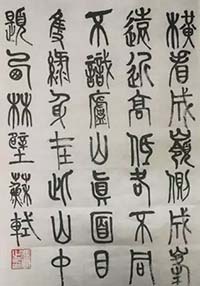 橫看成嶺側成峯
遠近高低各不同
不識廬山真面目
隻緣身在此山中
題西林壁蘇軾